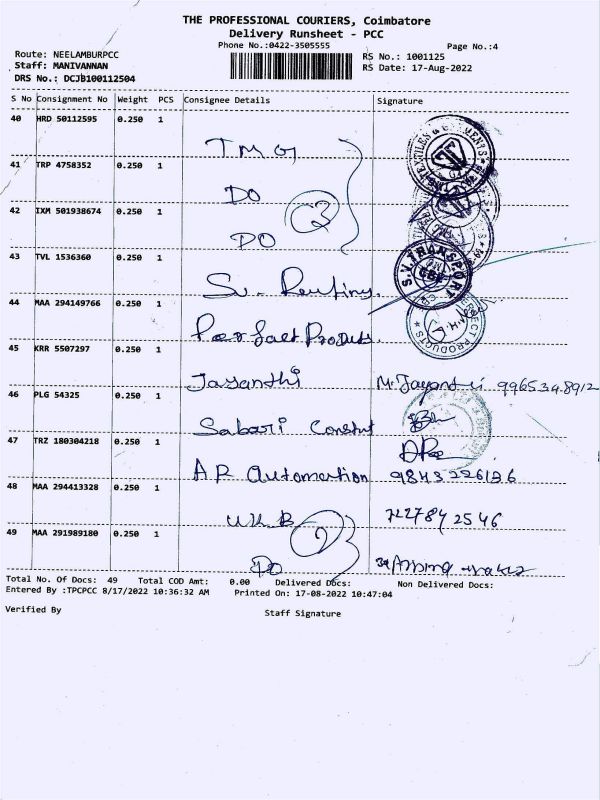 THE PROFESSIONAL COURIERS, Coimbatore
Delivery Runsheet - PCC
Phone No.:0422-3505555
Page No.:4
Route: NEELAMBURPCC
Staff: MANIVANNAN
DRS No.: DCJB100112504
RS No.: 1001125
RS Date: 17-Aug-2022
S No Consignment No Weight PCS Consignee Details Signature
40 HRD 50112595 0.250 1
TMG
41 TRP 4758352 0.250 1
DO
42 IXM 501938674 0.250 1
DO
43 TVL 1536360 0.250 1
S.V. TRANSPORT
CBE
44 MAA 294149766 0.250 1
Perfact Produts.
45 KRR 5507297 0.250 1
Jayanthi M. Jayanthi 9965348912
46 PLG 54325 0.250 1
Sabari Const
47 TRZ 180304218 0.250 1
AR Automation 9843226136
48 MAA 294413328 0.250 1
UKB 7227842546
49 MAA 291989180 0.250 1
DO
Total No. Of Docs: 49 Total COD Amt: 0.00 Delivered Docs: Non Delivered Docs:
Entered By :TPCPCC 8/17/2022 10:36:32 AM Printed On: 17-08-2022 10:47:04
Verified By Staff Signature